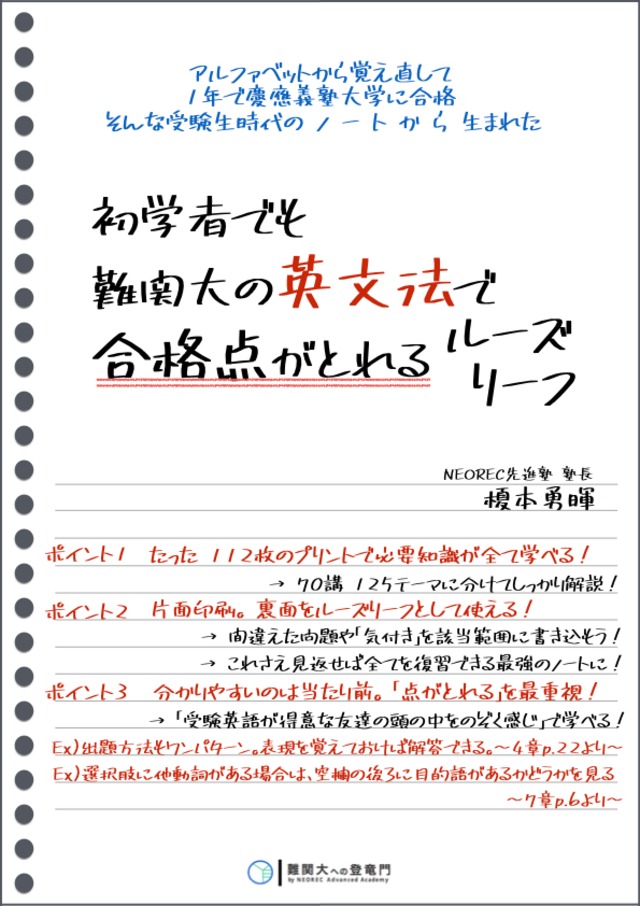 アルファベットから覚え直して
1年で慶應義塾大学に合格
そんな受験生時代のノートから生まれた
初学者でも
難関大の英文法で
合格点がとれるルーズ
リーフ
NEOREC先進塾 塾長
榎本勇暉
ポイント1 たった 112枚のプリントで必要知識が全て学べる!
→ 70講 125テーマに分けてしっかり解説!
ポイント2 片面印刷。裏面をルーズリーフとして使える!
→ 間違えた問題や「気付き」を該当範囲に書き込もう!
→ これさえ見返せば全てを復習できる最強のノートに!
ポイント3 分かりやすいのは当たり前。「点がとれる」を最重視!
→「受験英語が得意な友達の頭の中をのぞく感じ」で学べる!
Ex)出題方法もワンパターン。表現を覚えておけば解答できる。~4章p.22より~
Ex)選択肢に他動詞がある場合は、空欄の後ろに目的語があるかどうかを見る
~7章p.6より~
難関大への登竜門
by NEOREC Advanced Academy